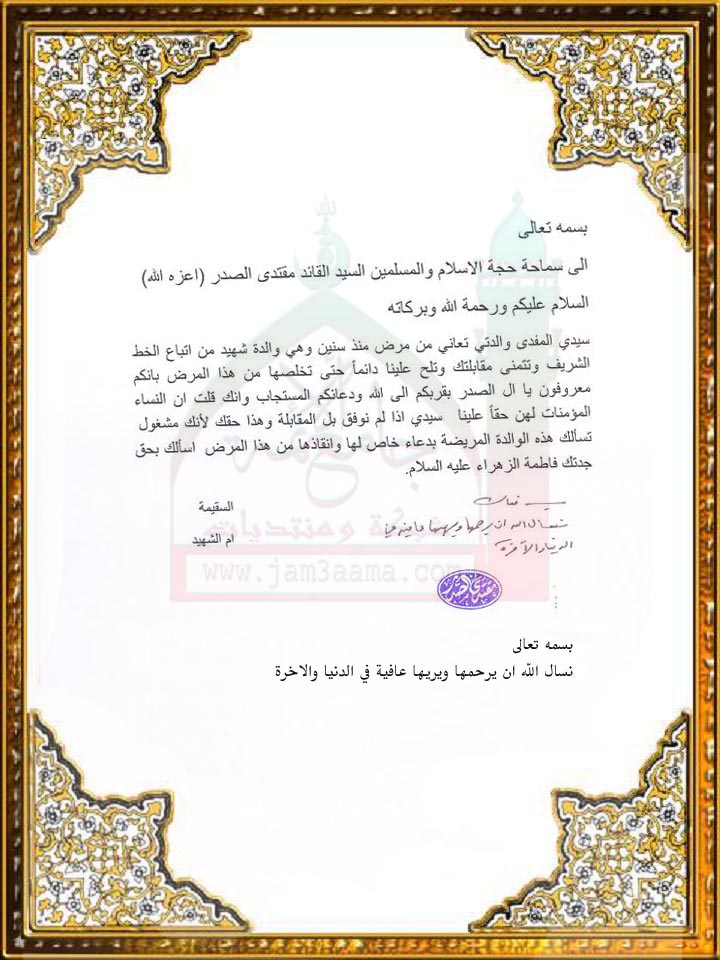 بسمه تعالى
الى سماحة حجة الاسلام والمسلمين السيد القائد مقتدى الصدر (اعزه الله)
السلام عليكم ورحمة الله وبركاته
سيدي المفدى والدتي تعاني من مرض منذ سنين وهي والدة شهيد من اتباع الخط
الشريف وتتمنى مقابلتك وتلح علينا دائماً حتى تخلصها من هذا المرض بانكم
معروفون يا ال الصدر بقربكم الى الله ودعائكم المستجاب وانك قلت ان النساء
المؤمنات لهن حقاً علينا سيدي اذا لم نوفق بل المقابلة وهذا حقك لأنك مشغول
تسألك هذه الوالدة المريضة بدعاء خاص لها وانقاذها من هذا المرض اسألك بحق
جدتك فاطمة الزهراء عليه السلام.
السقيمة
ام الشهيد
بسمه تعالى
نسال الله ان يرحمها ويريها عافية في
الدنيا والآخرة
مقتدى الصدر
شبكة ومنتديات
جامع الائمة
www.jam3aama.com
بسمه تعالى
نسال الله ان يرحمها ويريها عافية في الدنيا والاخرة